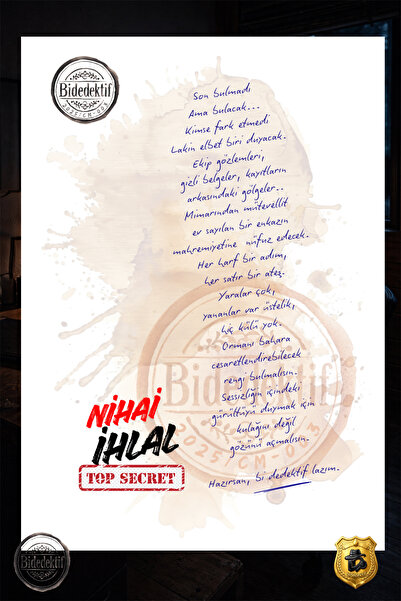 Bidedektif
2025/CM-003
Son bulmadı
Ama bulacak...
Kimse fark etmedi
Lakin elbet biri duyacak.
Ekip gözlemleri,
gizli belgeler, kayıtların
arkasındaki gölgeler..
Mimarından mütevellit
ev sayılan bir enkazın
mahremiyetine nüfuz edecek.
Her harf bir adım,
her satır bir ateş.
Yaralar çok,
yananlar var üstelik,
hiç külü yok.
Ormanı bahara
cesaretlendirebilecek
rengi bulmalısın.
Sessizliğin içindeki
gürültüyü duymak için
kulağını değil
gözünü açmalısın.
Hazırsan, bi dedektif lazım.
Bidedektif
2025/CM-003
NİHAİ
İHLAL
TOP SECRET
Bidedektif